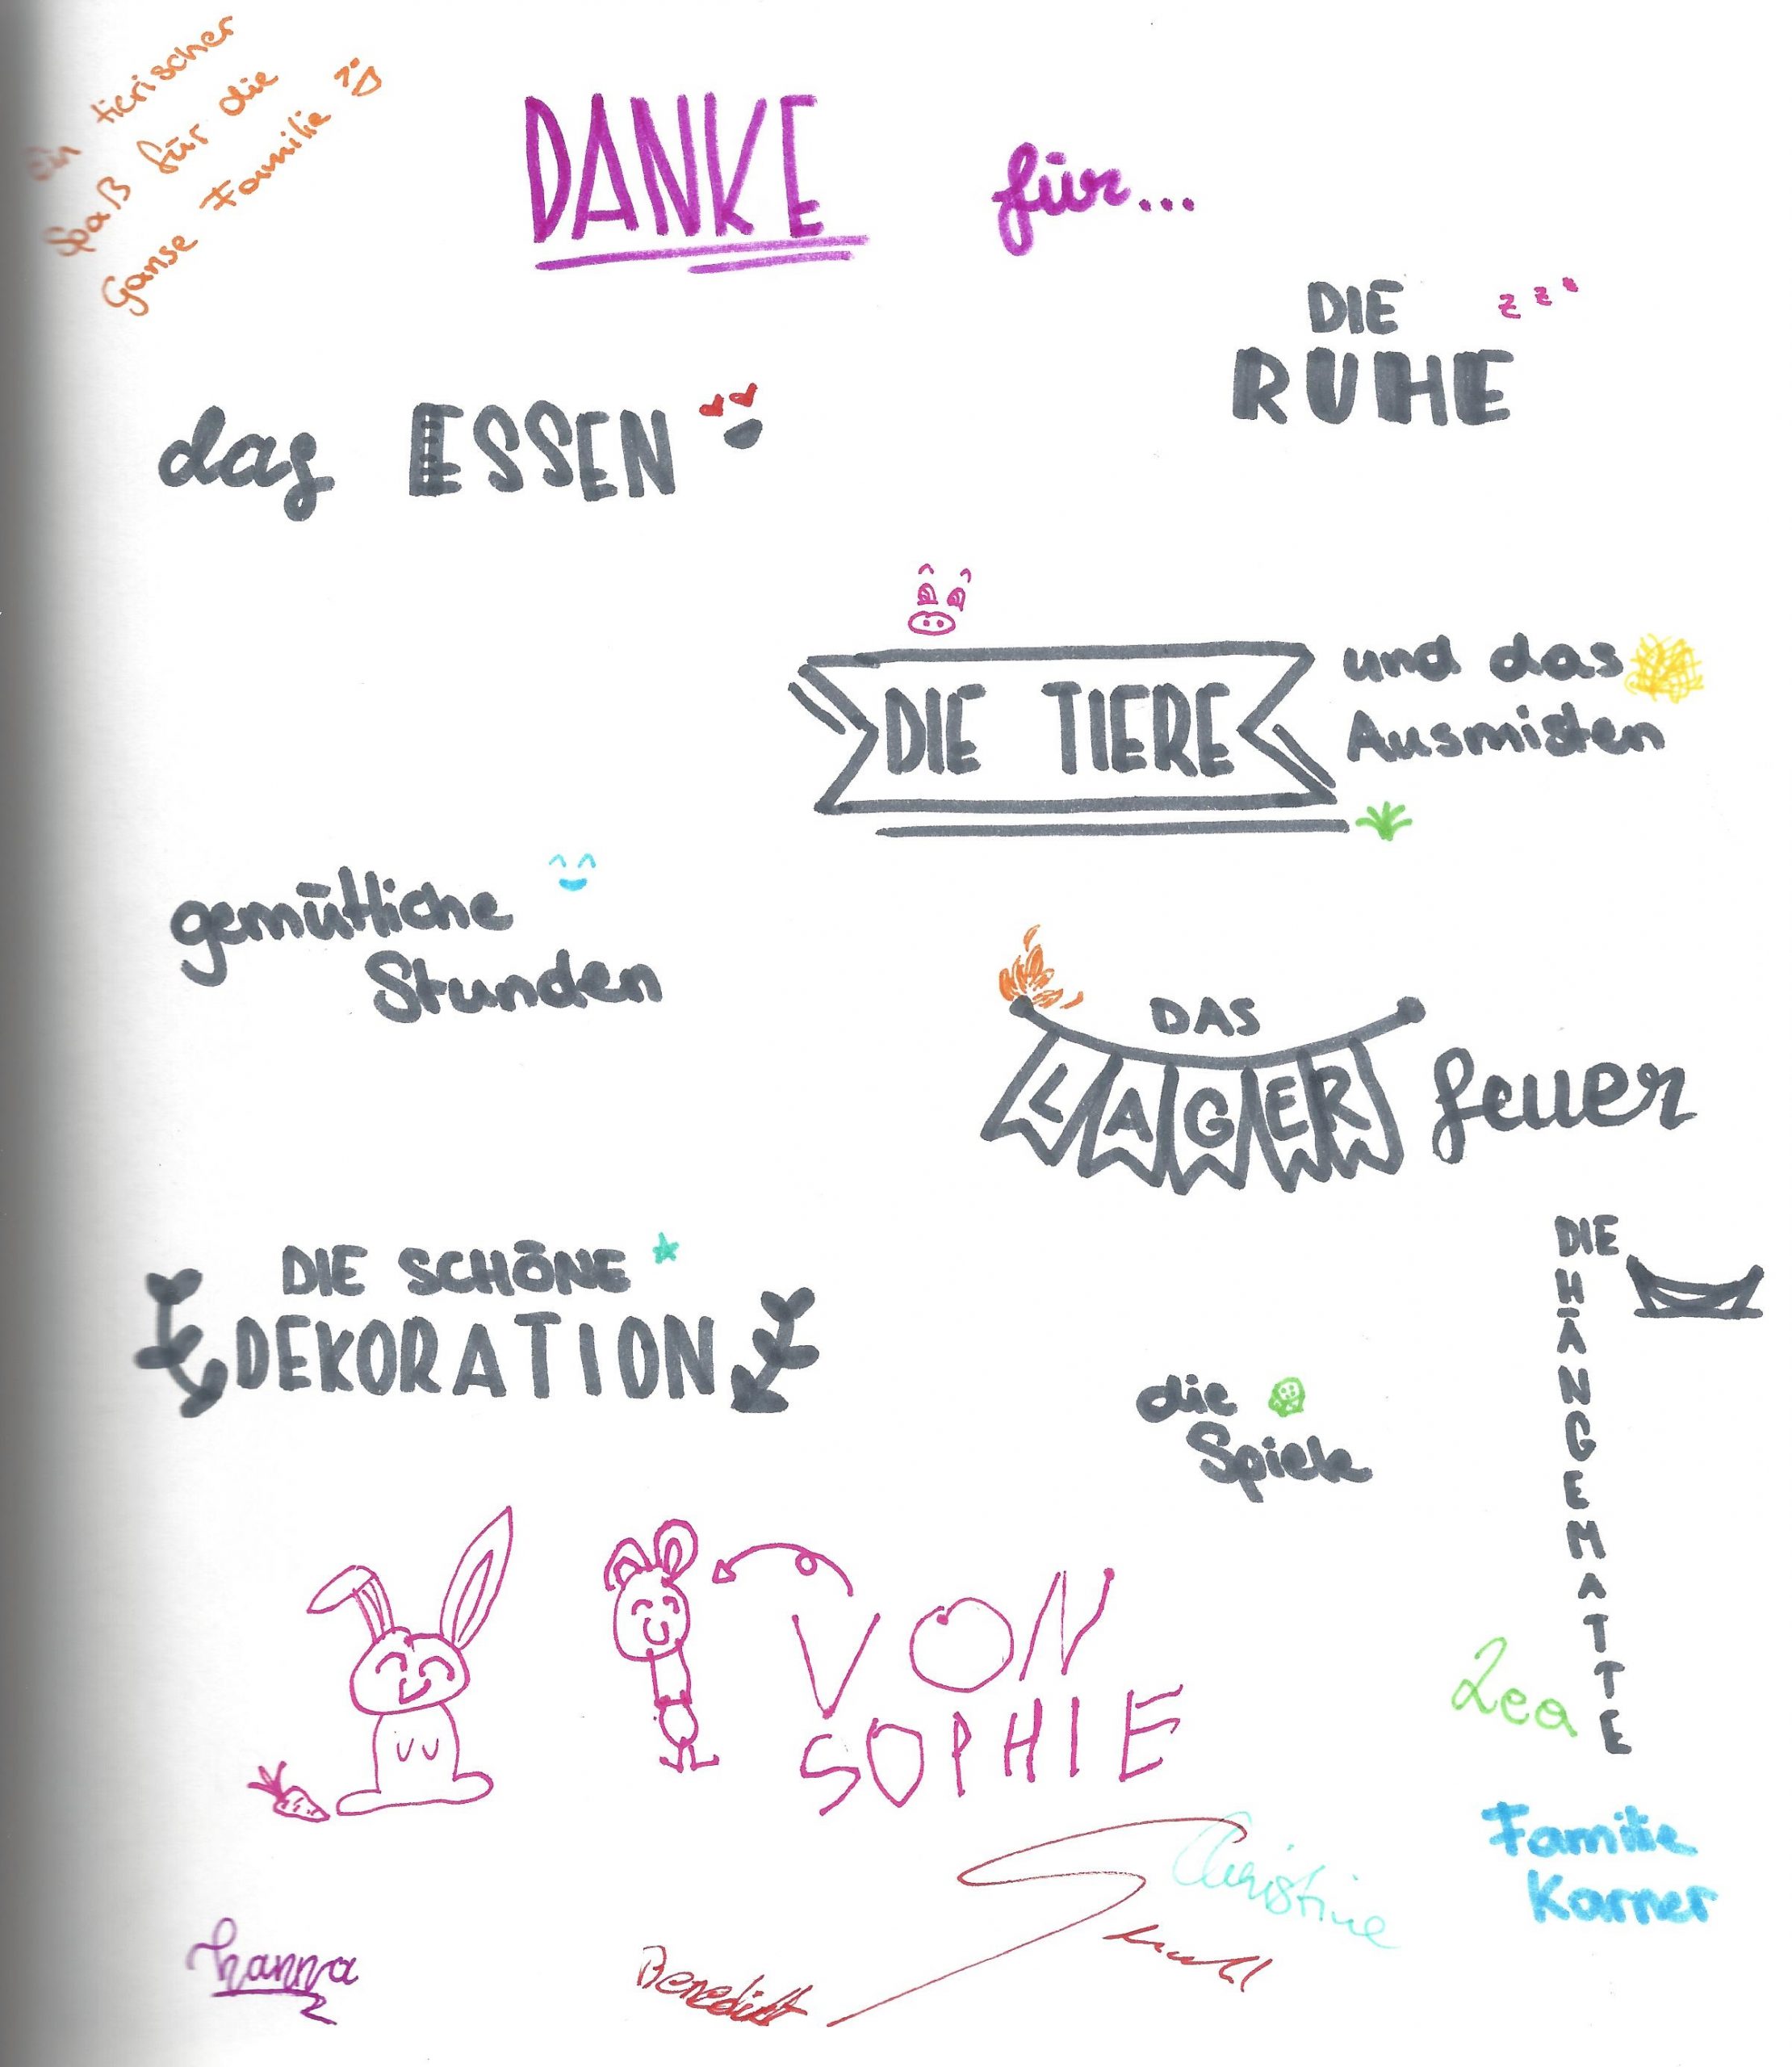 Ein tierischer
Spaß für die
Ganse Familie :D
DANKE für...
DIE
RUHE
z z z
das ESSEN
DIE TIERE
und das
Ausmisten
gemütliche
Stunden
DAS
LAGER feuer
DIE SCHÖNE
DEKORATION
die
Spiele
DIE
HÄNGEMATTE
VON
SOPHIE
Lea
Familie
Karner
Christine
hanna
Benedikt